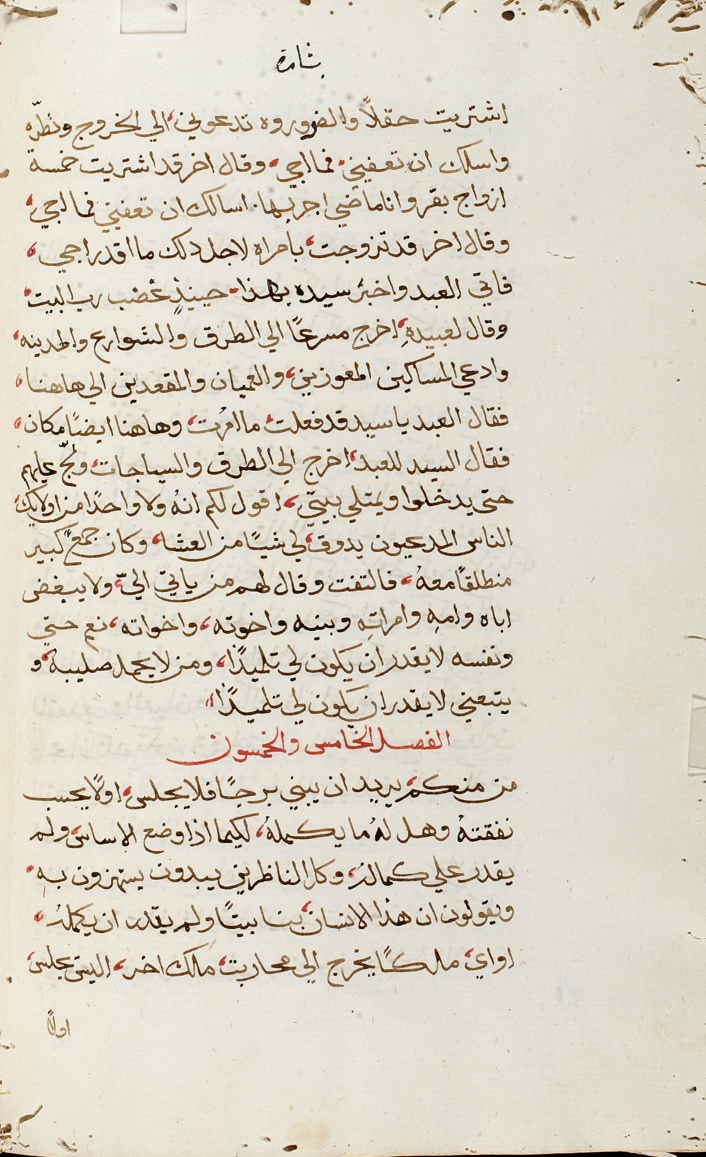 بشارة
اشتريت حقلًا والضروروه تدعوني الي الخروج ونظره
واسلك ان تعفيني فما اجي وقال اخر قد اشتريت خمسة
ازواج بقر وانا ماضي اجربها اسالك ان تعفيني فما اجي
وقال اخر قد تزوجت بامراه لاجل دلك ما اقدر اجي
فاتي العبد واخبر سيده بهذا حينيذٍ غضب رب البيت
وقال لعبيدهِ اخرج مسرعًا الي الطرق والشوارع والمدينه
وادعي المساكين المعوزين والعميان والمقعدين الي هاهنا
فقال العبد ياسيد قد فعلت ما امرت وهاهنا ايضًا مكان
فقال السيد للعبد اخرج الي الطرق والسياجات ولجّ عليهم
حتي يدخلوا ويمتلي بيتي اقول لكم انهُ ولا واحدًا من اولايك
الناس المدعيون يدوق لي شيًا من العشا وكان جمعٌ كبير
منطلقًا معهُ فالتفت وقال لهم من ياتي اليّ ولا يبغض
اباه وامهِ وامراتهِ وبنيه واخوته واخواته نعم حتي
ونفسه لا يقدر ان يكون لي تلميذًا ومن لا يحمل صليبه و
يتبعني لا يقدر ان يكون لي تلميذًا
الفصل الخامس والخمسون
من منكم يريد ان يبني برجًا فلا يجلس اولًا يحسب
نفقتهُ وهل لهُ ما يكمله لكيما اذا وضع الاساس ولم
يقدر علي كماله وكل الناظرين يبدون يستهزون به
ويقولون ان هذا الانسان بنا بيتًا ولم يقدر ان يكمله
او اي ملكًا يخرج الي محاربت ملك اخر اليس يجلس
اولًا